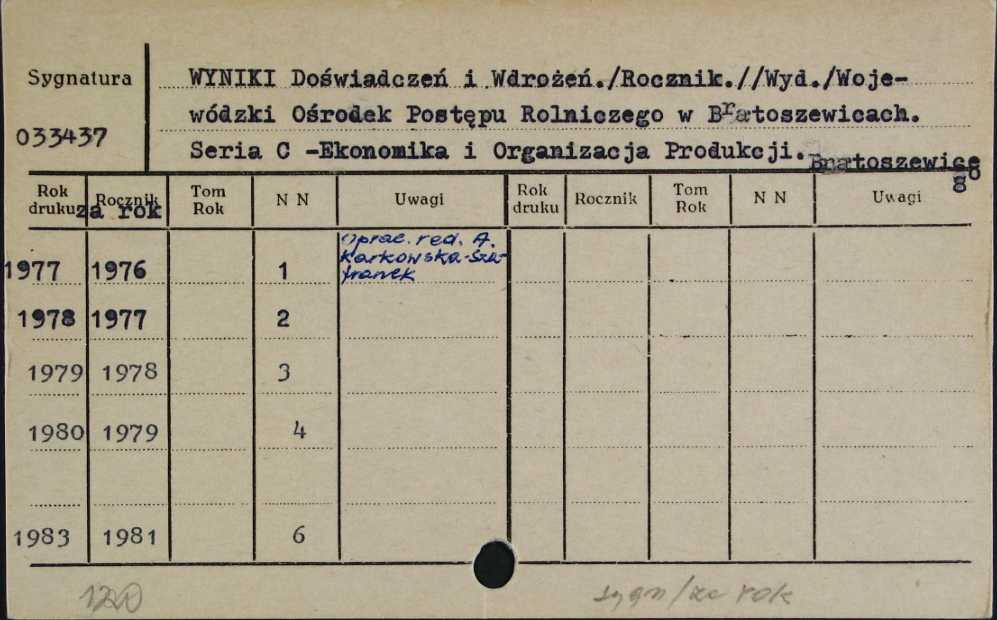 Sygnatura
WYNIKI Doświadczeń i Wdrożeń./Rocznik.//Wyd./Woje-
wódzki Ośrodek Postępu Rolniczego w Bratoszewicach.
033437
Seria C -Ekonomika i Organizacja Produkcji.
Bratoszewice
8°
Rok druku Rocznik Tom Rok N N Uwagi Rok druku Rocznik Tom Rok N N Uwagi
za rok
oprac. red. A.
Karkowska-Sza-
franek
1977 1976 1
1978 1977 2
1979 1978 3
1980 1979 4
1983 1981 6
sygn/za rok